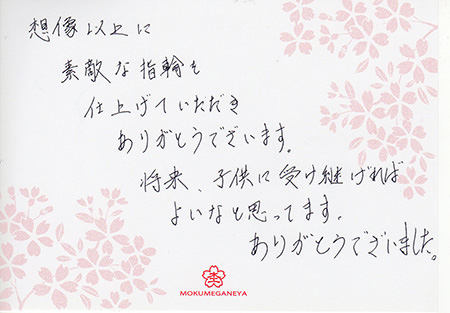 想像以上に
素敵な指輪を
仕上げていただき
ありがとうございます。
将来、子供に受け継げれば
よいなと思ってます。
ありがとうございました。
MOKUMEGANEYA